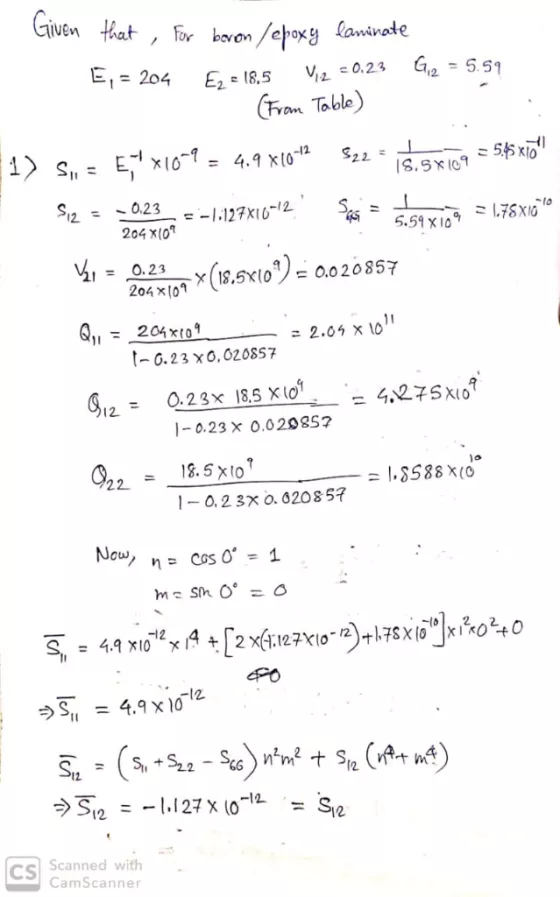 Given that, For boron/epoxy laminate
E₁ = 204 E₂ = 18.5 V₁₂ = 0.23 G₁₂ = 5.59
(From Table)
1) S₁₁ = E₁⁻¹ × 10⁻⁹ = 4.9 × 10⁻¹² S₂₂ = 1/(18.5 × 10⁹) = 5.45 × 10⁻¹¹
S₁₂ = -0.23/(204 × 10⁹) = -1.127 × 10⁻¹² S₆₆ = 1/(5.59 × 10⁹) = 1.78 × 10⁻¹⁰
V₂₁ = 0.23/(204 × 10⁹) × (18.5 × 10⁹) = 0.020857
Q₁₁ = 204 × 10⁹/(1 - 0.23 × 0.020857) = 2.04 × 10¹¹
Q₁₂ = 0.23 × 18.5 × 10⁹/(1 - 0.23 × 0.020857) = 4.275 × 10⁹
Q₂₂ = 18.5 × 10⁹/(1 - 0.23 × 0.020857) = 1.8588 × 10¹⁰
Now, n = cos 0° = 1
m = sin 0° = 0
S̅₁₁ = 4.9 × 10⁻¹² × 1⁴ + [2 × (-1.127 × 10⁻¹²) + 1.78 × 10⁻¹⁰] × 1² × 0² + 0
⇒ S̅₁₁ = 4.9 × 10⁻¹²
S̅₁₂ = (S₁₁ + S₂₂ - S₆₆) n²m² + S₁₂ (n⁴ + m⁴)
⇒ S̅₁₂ = -1.127 × 10⁻¹² = S₁₂
CS Scanned with
CamScanner